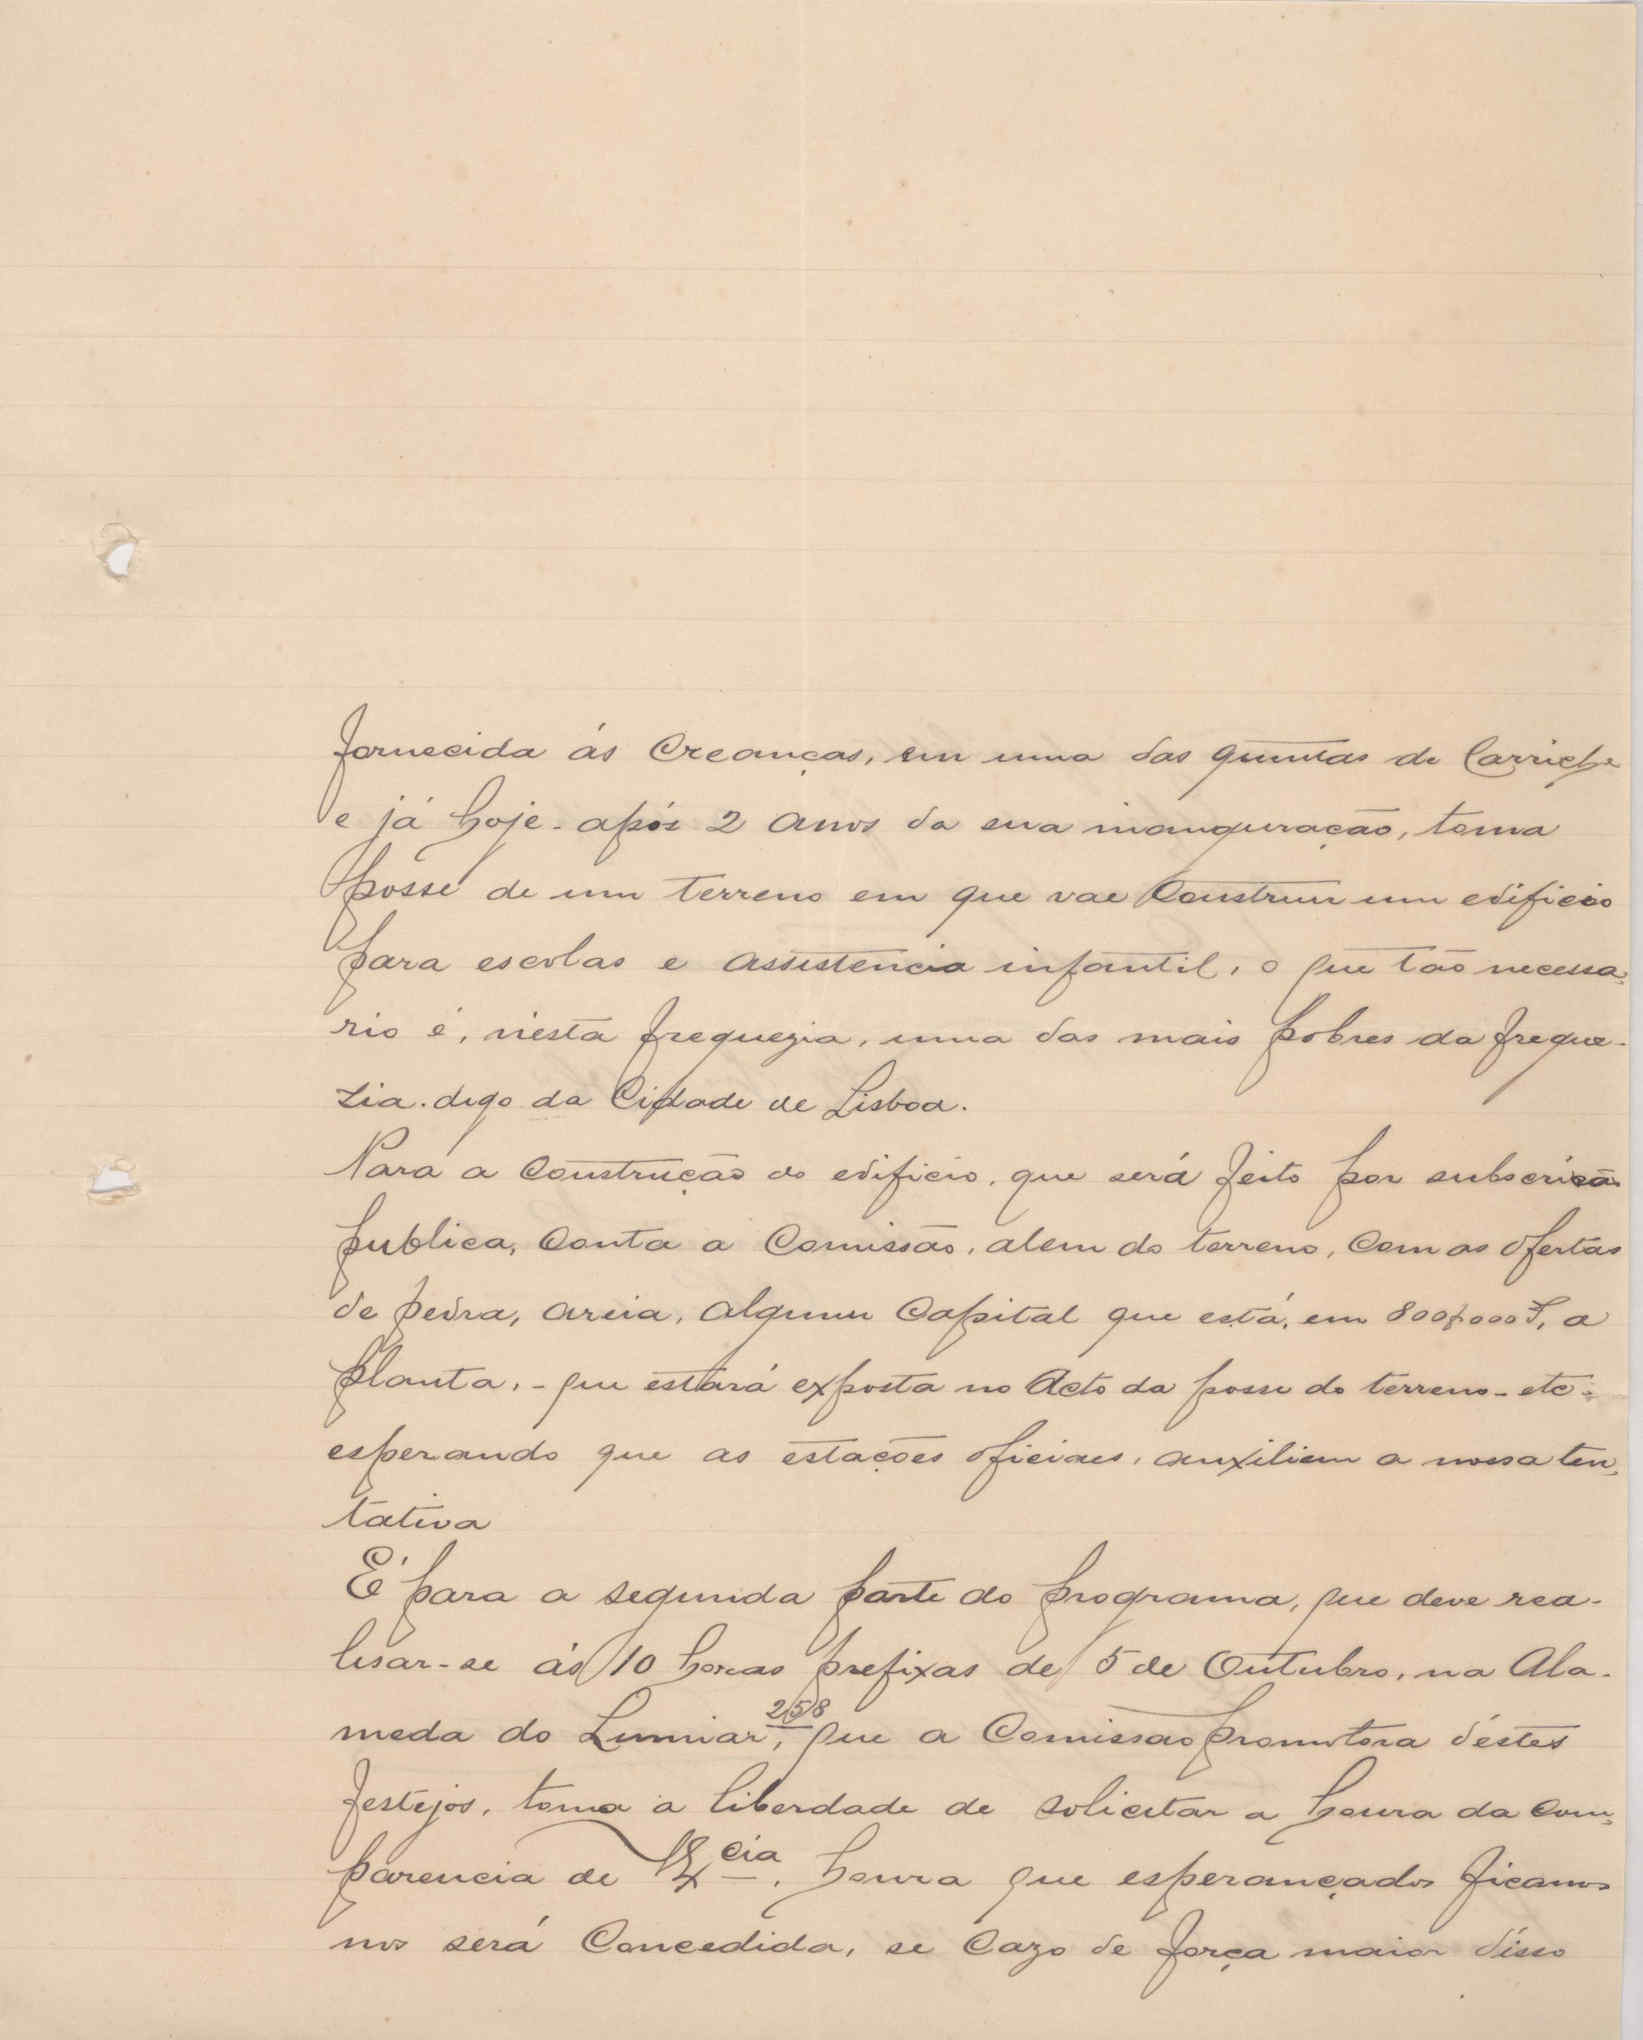 fornecida ás Creanças, em uma das quintas de Carriche
e já hoje - após 2 Anos da sua inauguração, toma
posse de um terreno em que vae Construir um edificio
para escolas e assistencia infantil, o que tão necessa-
rio é, nésta freguezia, uma das mais pobres da fregue-
zia. digo da Cidade de Lisboa.
Para a Construção do edificio, que será feito por subscrição
publica, Conta a Comissão, alem do terreno, Com as Ofertas
de pedra, areia, algum Capital que está, em 800$000 , a
planta, - que estará exposta no Acto da posse do terreno - etc -
esperando que as estações oficiaes, auxiliem a nossa ten-
tativa
É para a segunda parte do programa, que deve rea-
lisar-se ás 10 horas prefixas de 5 de Outubro, na Ala-
meda do Lumiar, 258 que a Comissão promotora déstes
festejos, toma a liberdade de solicitar a honra da com-
parencia de V. Ex.cia, honra que esperançados ficamos
nos será Concedida, se Cazo de força maior disso